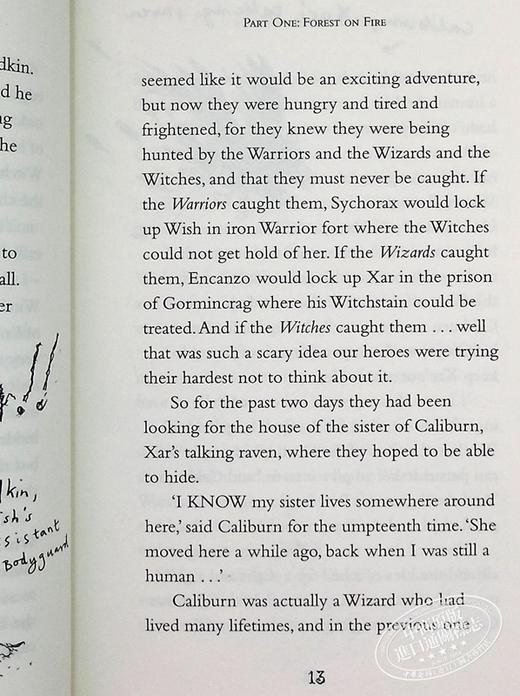 PART ONE: FOREST ON FIRE
seemed like it would be an exciting adventure,
but now they were hungry and tired and
frightened, for they knew they were being
hunted by the Warriors and the Wizards and the
Witches, and that they must never be caught. If
the Warriors caught them, Sychorax would lock
up Wish in iron Warrior fort where the Witches
could not get hold of her. If the Wizards caught
them, Encanzo would lock up Xar in the prison
of Gormincrag where his Witchstain could be
treated. And if the Witches caught them . . . well
that was such a scary idea our heroes were trying
their hardest not to think about it.
So for the past two days they had been
looking for the house of the sister of Caliburn,
Xar's talking raven, where they hoped to be able
to hide.
'I KNOW my sister lives somewhere around
here,' said Caliburn for the umpteenth time. 'She
moved here a while ago, back when I was still a
human . . .'
Caliburn was actually a Wizard who had
lived many lifetimes, and in the previous one
13
dkin.
d he
ng
he
to
all.
er
!!
kin,
sh's
sistant
Bodyguard